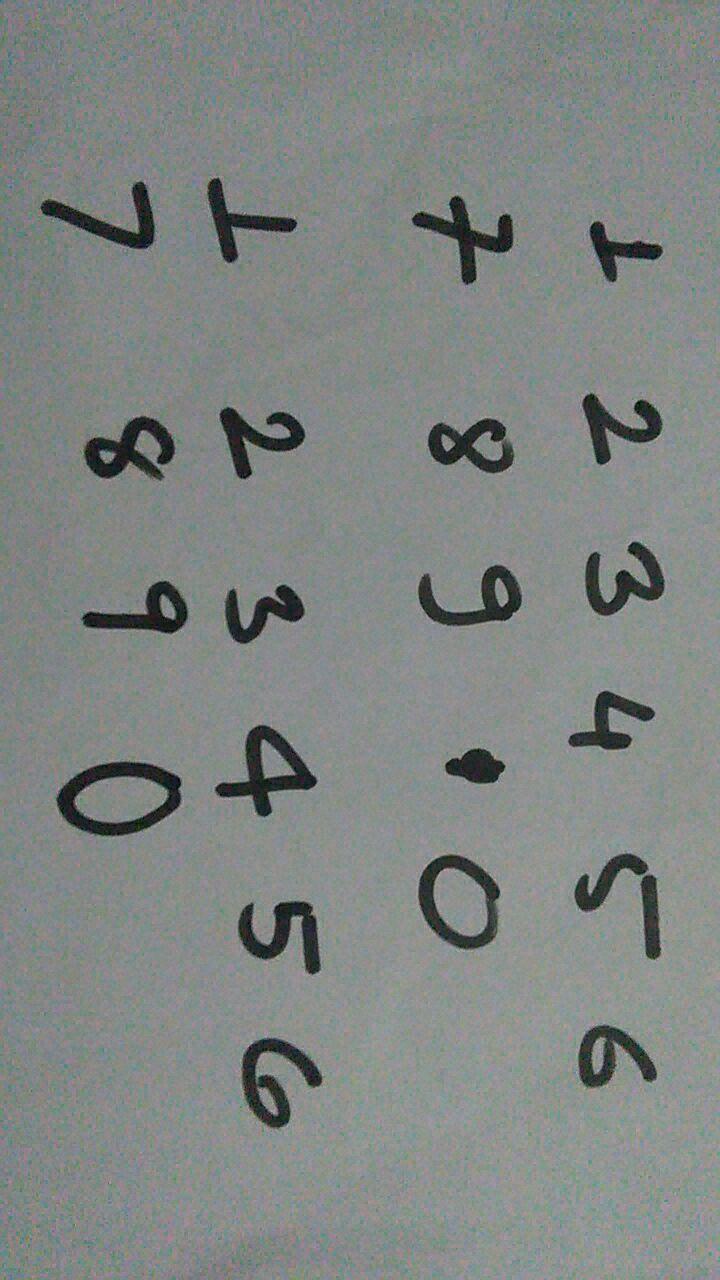 1 2 3 4 5 6
7 8 9 . 0
1 2 3 4 5 6
7 8 9 0